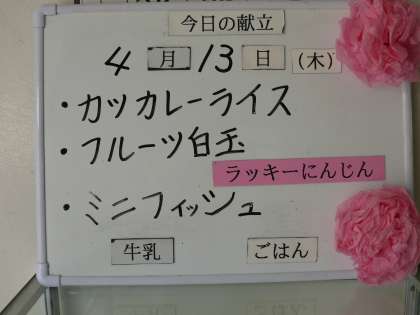 今日の献立
4月13日(木)
・カツカレーライス
・フルーツ白玉
ラッキーにんじん
・ミニフィッシュ
牛乳 ごはん